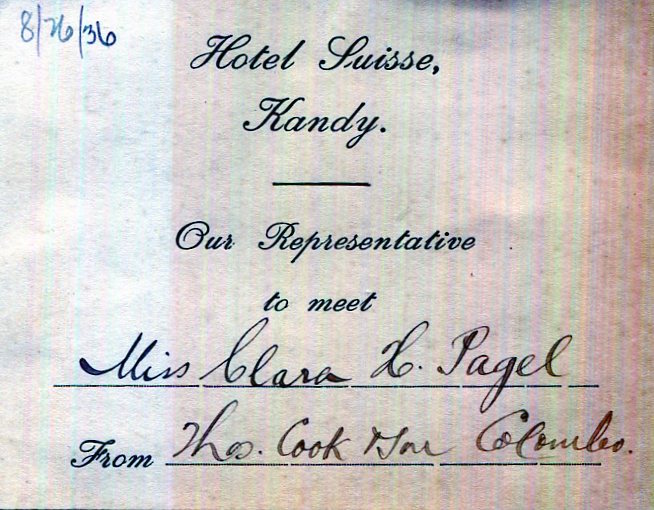 8/26/36
Hotel Suisse,
Kandy.
Our Representative
to meet
Miss Clara H. Pagel
From Thos. Cook & Son Colombo.